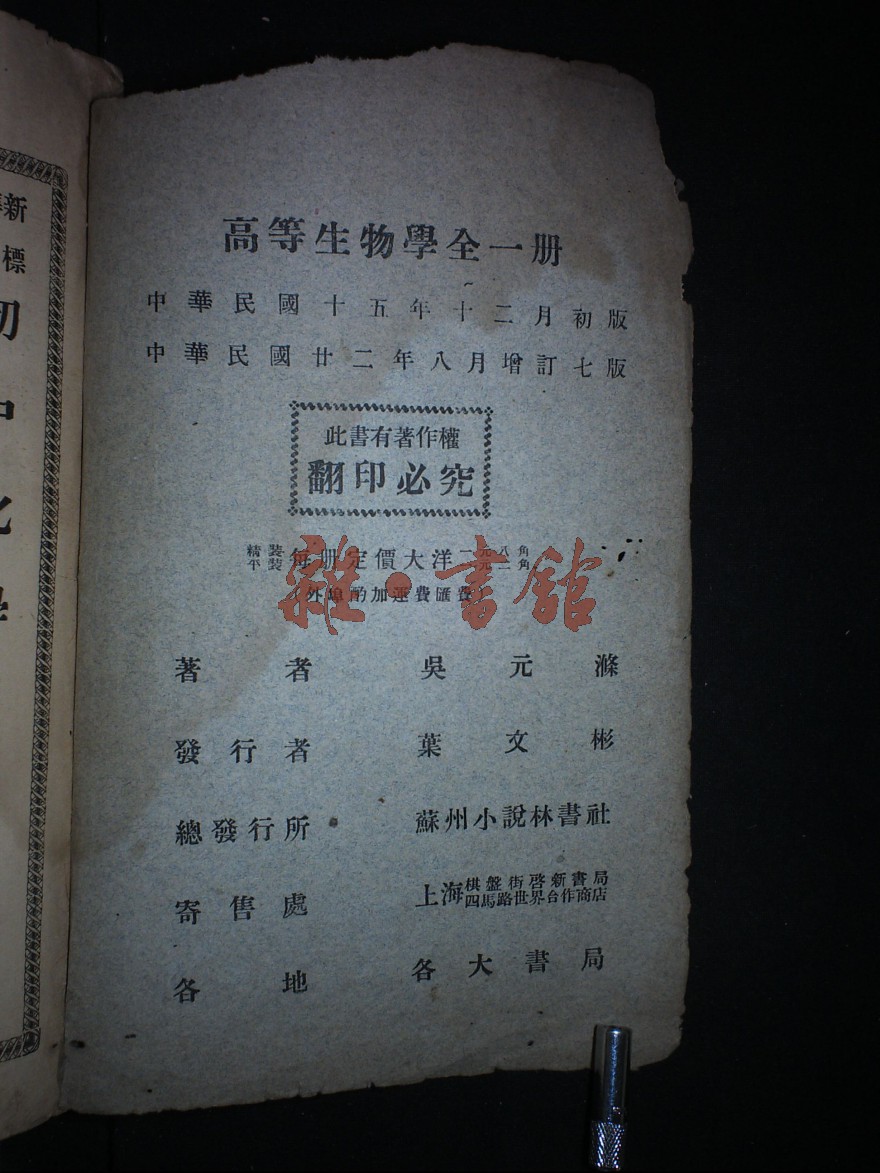 高等生物學全一册
中華民國十五年十二月初版
中華民國廿二年八月增訂七版
此書有著作權
翻印必究
精裝 每册定價大洋二元八角
平裝 元二角
(外埠酌加運費匯費)
雜·書館
著者 吳元滌
發行者 葉文彬
總發行所 蘇州小說林書社
寄售處 上海棋盤街啓新書局
四馬路世界合作商店
各地 各大書局
新
標
初
中
化
學